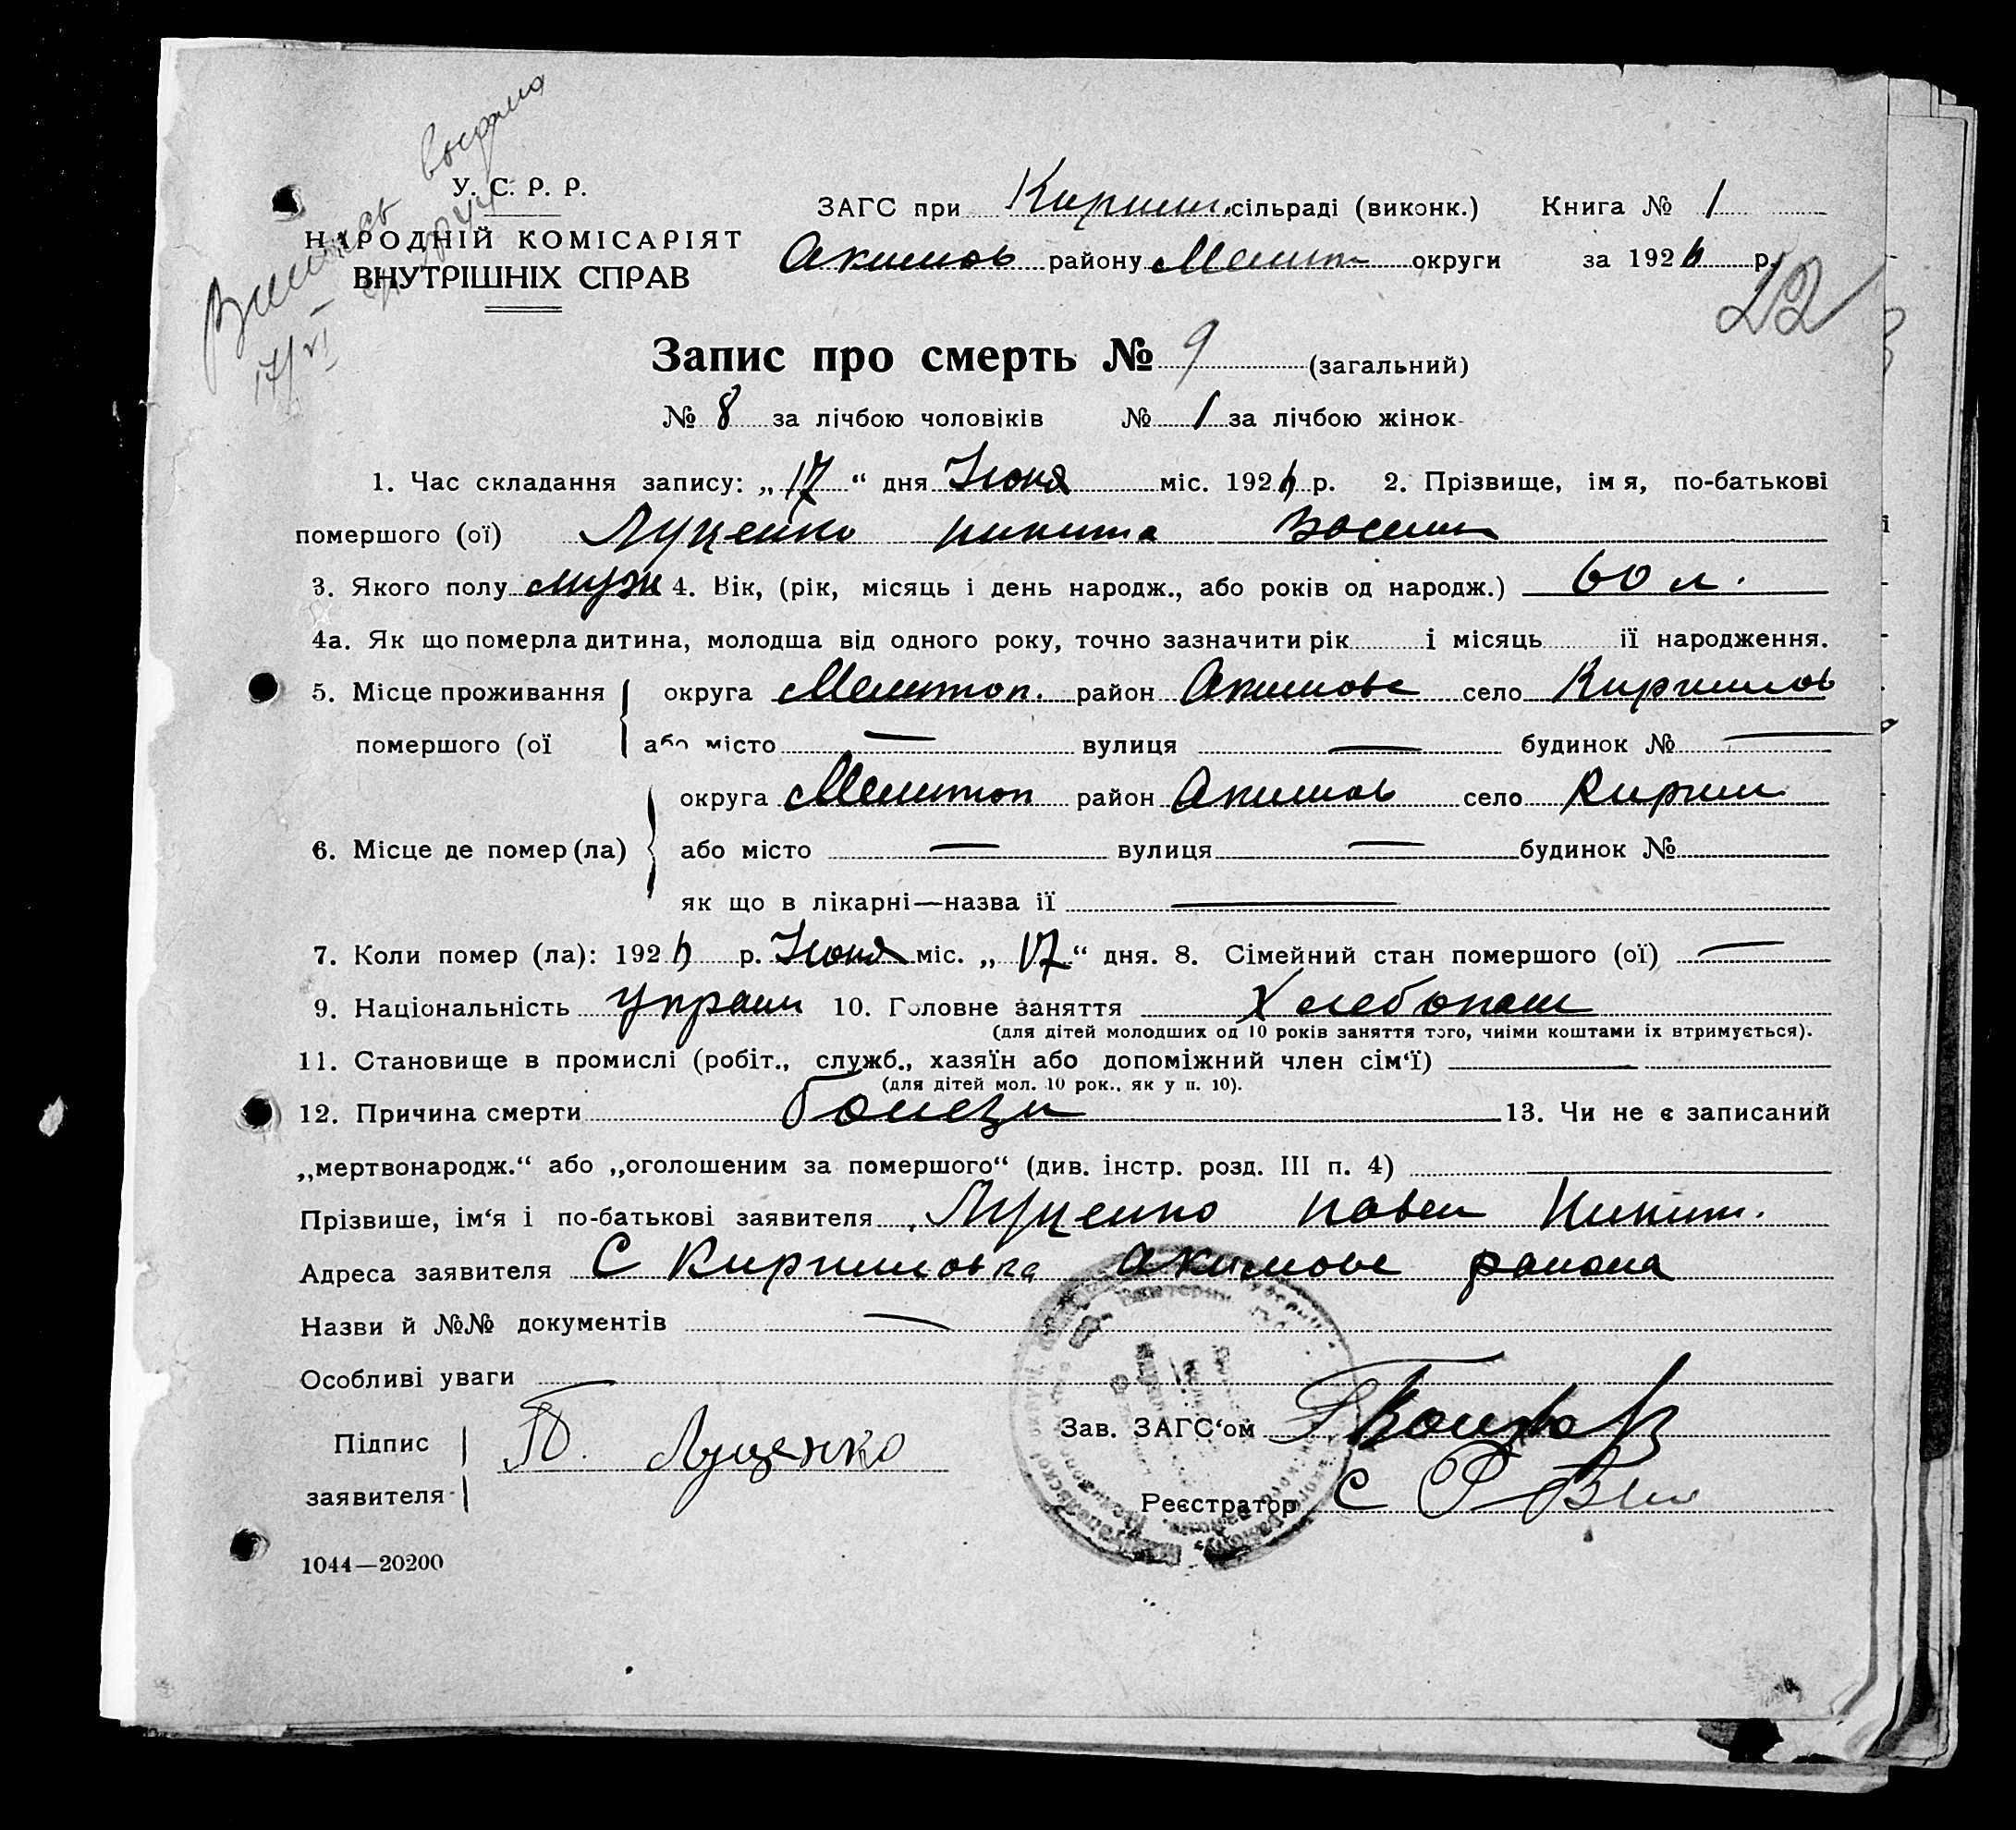 выдана
Выпись
17/VI
У. С. Р. Р.
НАРОДНІЙ КОМІСАРІЯТ
ВНУТРІШНІХ СПРАВ
ЗАГС при Кирил. сільраді (виконк.) Книга № 1
Акимов району Мелит округи за 192 р.
22
Запис про смерть № 9 (загальний)
№ 8 за лічбою чоловіків № 1 за лічбою жінок
1. Час складання запису: „17“ дня Июня міс. 192 р. 2. Прізвище, імя, по-батькові
помершого (ої) Луценко Никита Васил
3. Якого полу муж 4. Вік, (рік, місяць і день народж., або років од народж.) 60 л.
4а. Як що померла дитина, молодша від одного року, точно зазначити рік і місяць її народження.
5. Місце проживання помершого (ої округа Мелитоп. район Акимовс село Кирилов
або місто — вулиця — будинок № —
6. Місце де помер (ла) округа Мелитоп район Акимов село Кирил
або місто — вулиця — будинок №
як що в лікарні—назва її —
7. Коли помер (ла): 192 р. Июня міс. „17“ дня. 8. Сімейний стан помершого (ої) —
9. Національність Украин 10. Головне заняття Хлебопаш
(для дітей молодших од 10 років заняття того, чиїми коштами їх втримується).
11. Становище в промислі (робіт., служб., хазяїн або допоміжний член сім‘ї) —
(для дітей мол. 10 рок., як у п. 10).
12. Причина смерти 13. Чи не є записаний
„мертвонародж.“ або „оголошеним за помершого“ (див. інстр. розд. III п. 4) —
Прізвише, ім‘я і по-батькові заявителя Луценко Павел Никит.
Адреса заявителя С Кирилловка Акимовс района
Назви й №№ документів —
Особливі уваги —
Підпис
заявителя П. Луценко
Зав. ЗАГС‘ом
Реєстратор
1044—20200